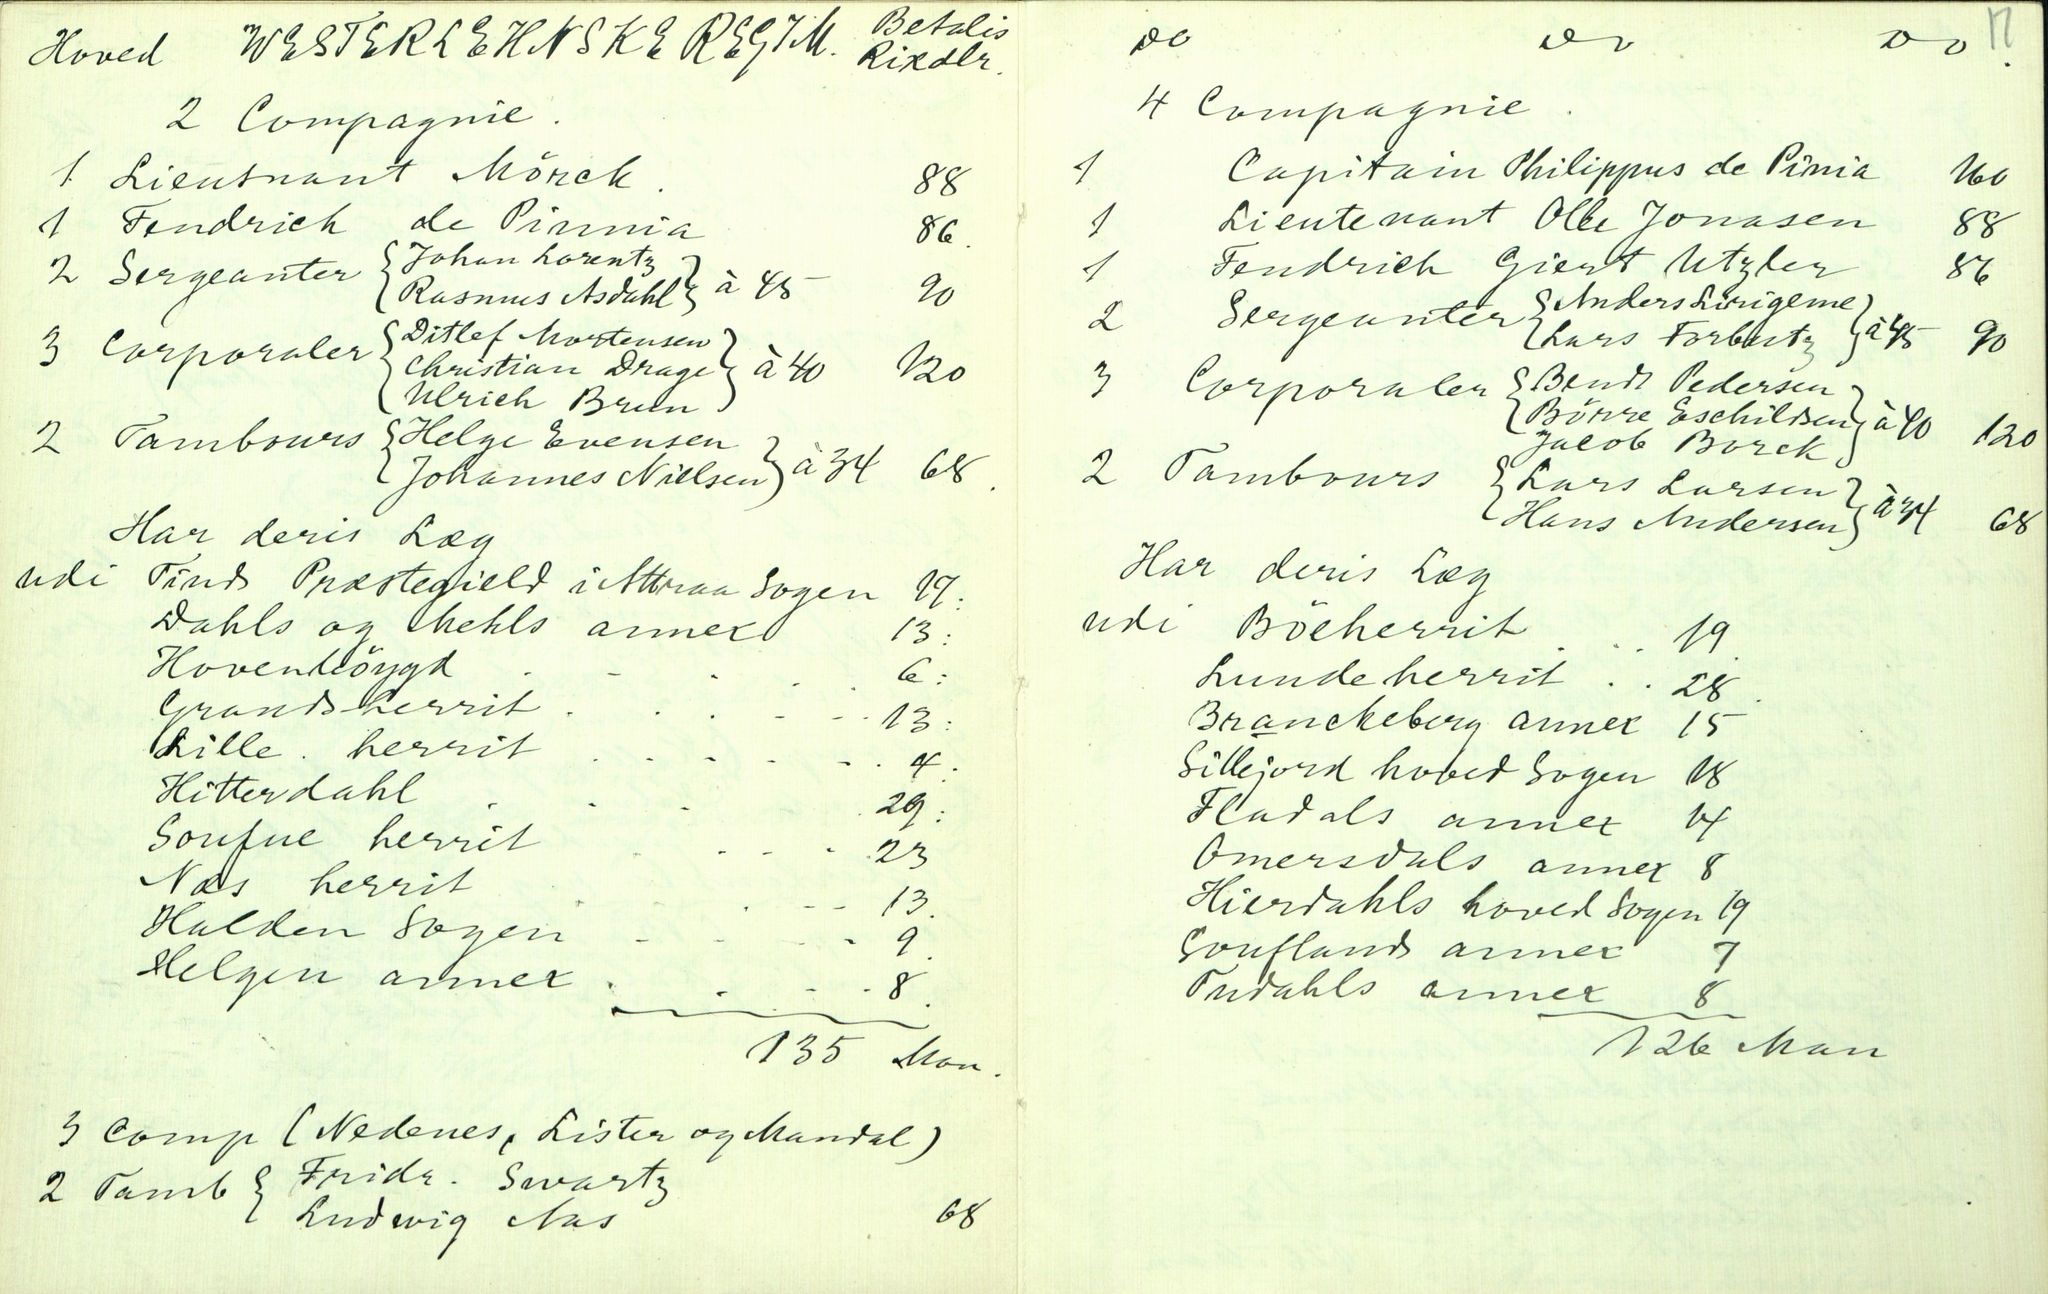 Hoved WESTERLEHNSKE REGIM. Betalis Rixdlr.
2 Compagnie.
1 Lieutnant Mörck. 88
1 Fendrich de Pinnia 86.
2 Sergeanter { Johan Lorentz
Rasmus Asdahl } à 45 90
3 Corporaler { Ditlef Mortensen
Christian Drage } à 40 120
Ulrich Brun
2 Tambours { Helge Evensen
Johannes Nielsen } à 34 68.
Har deris Læg
udi Tinds Præstegield i Attraa Sogen 17:
Dahls og Mehls annex 13:
Hovenböygd 6:
Grandsherrit 13:
Lille herrit 4.
Hitterdahl 29:
Soufue herrit 23
Næs herrit 13.
Halden Sogen 9.
Helgen annex 8.
135 Man.
3 Comp (Nedenes, Lister og Mandal)
2 Tamb { Fridr. Swartz
Ludwig Aas 68
Do Do Do 17.
4 Compagnie.
1 Capitain Philippus de Pinia 160
1 Lieutenant Olle Jonasen 88
1 Fendrich Giert Utzler 86
2 Sergeanter { Anders
Lars Forbutz } à 45 90
3 Corporaler { Bendt Pedersen
Börre Eschildsen } à 40 120
Jacob Borck
2 Tambours { Lars Larsen
Hans Andersen } à 34 68
Har deris Læg
udi Böeherrit 19
Lundeherrit 28.
Branckeberg annex 15
Sillejord hoved Sogen 18
Fladals annex 14
Omersdals annex 8
Hierdahls hoved Sogen 19
Souflands annex 7
Tudahls annex 8
126 Man